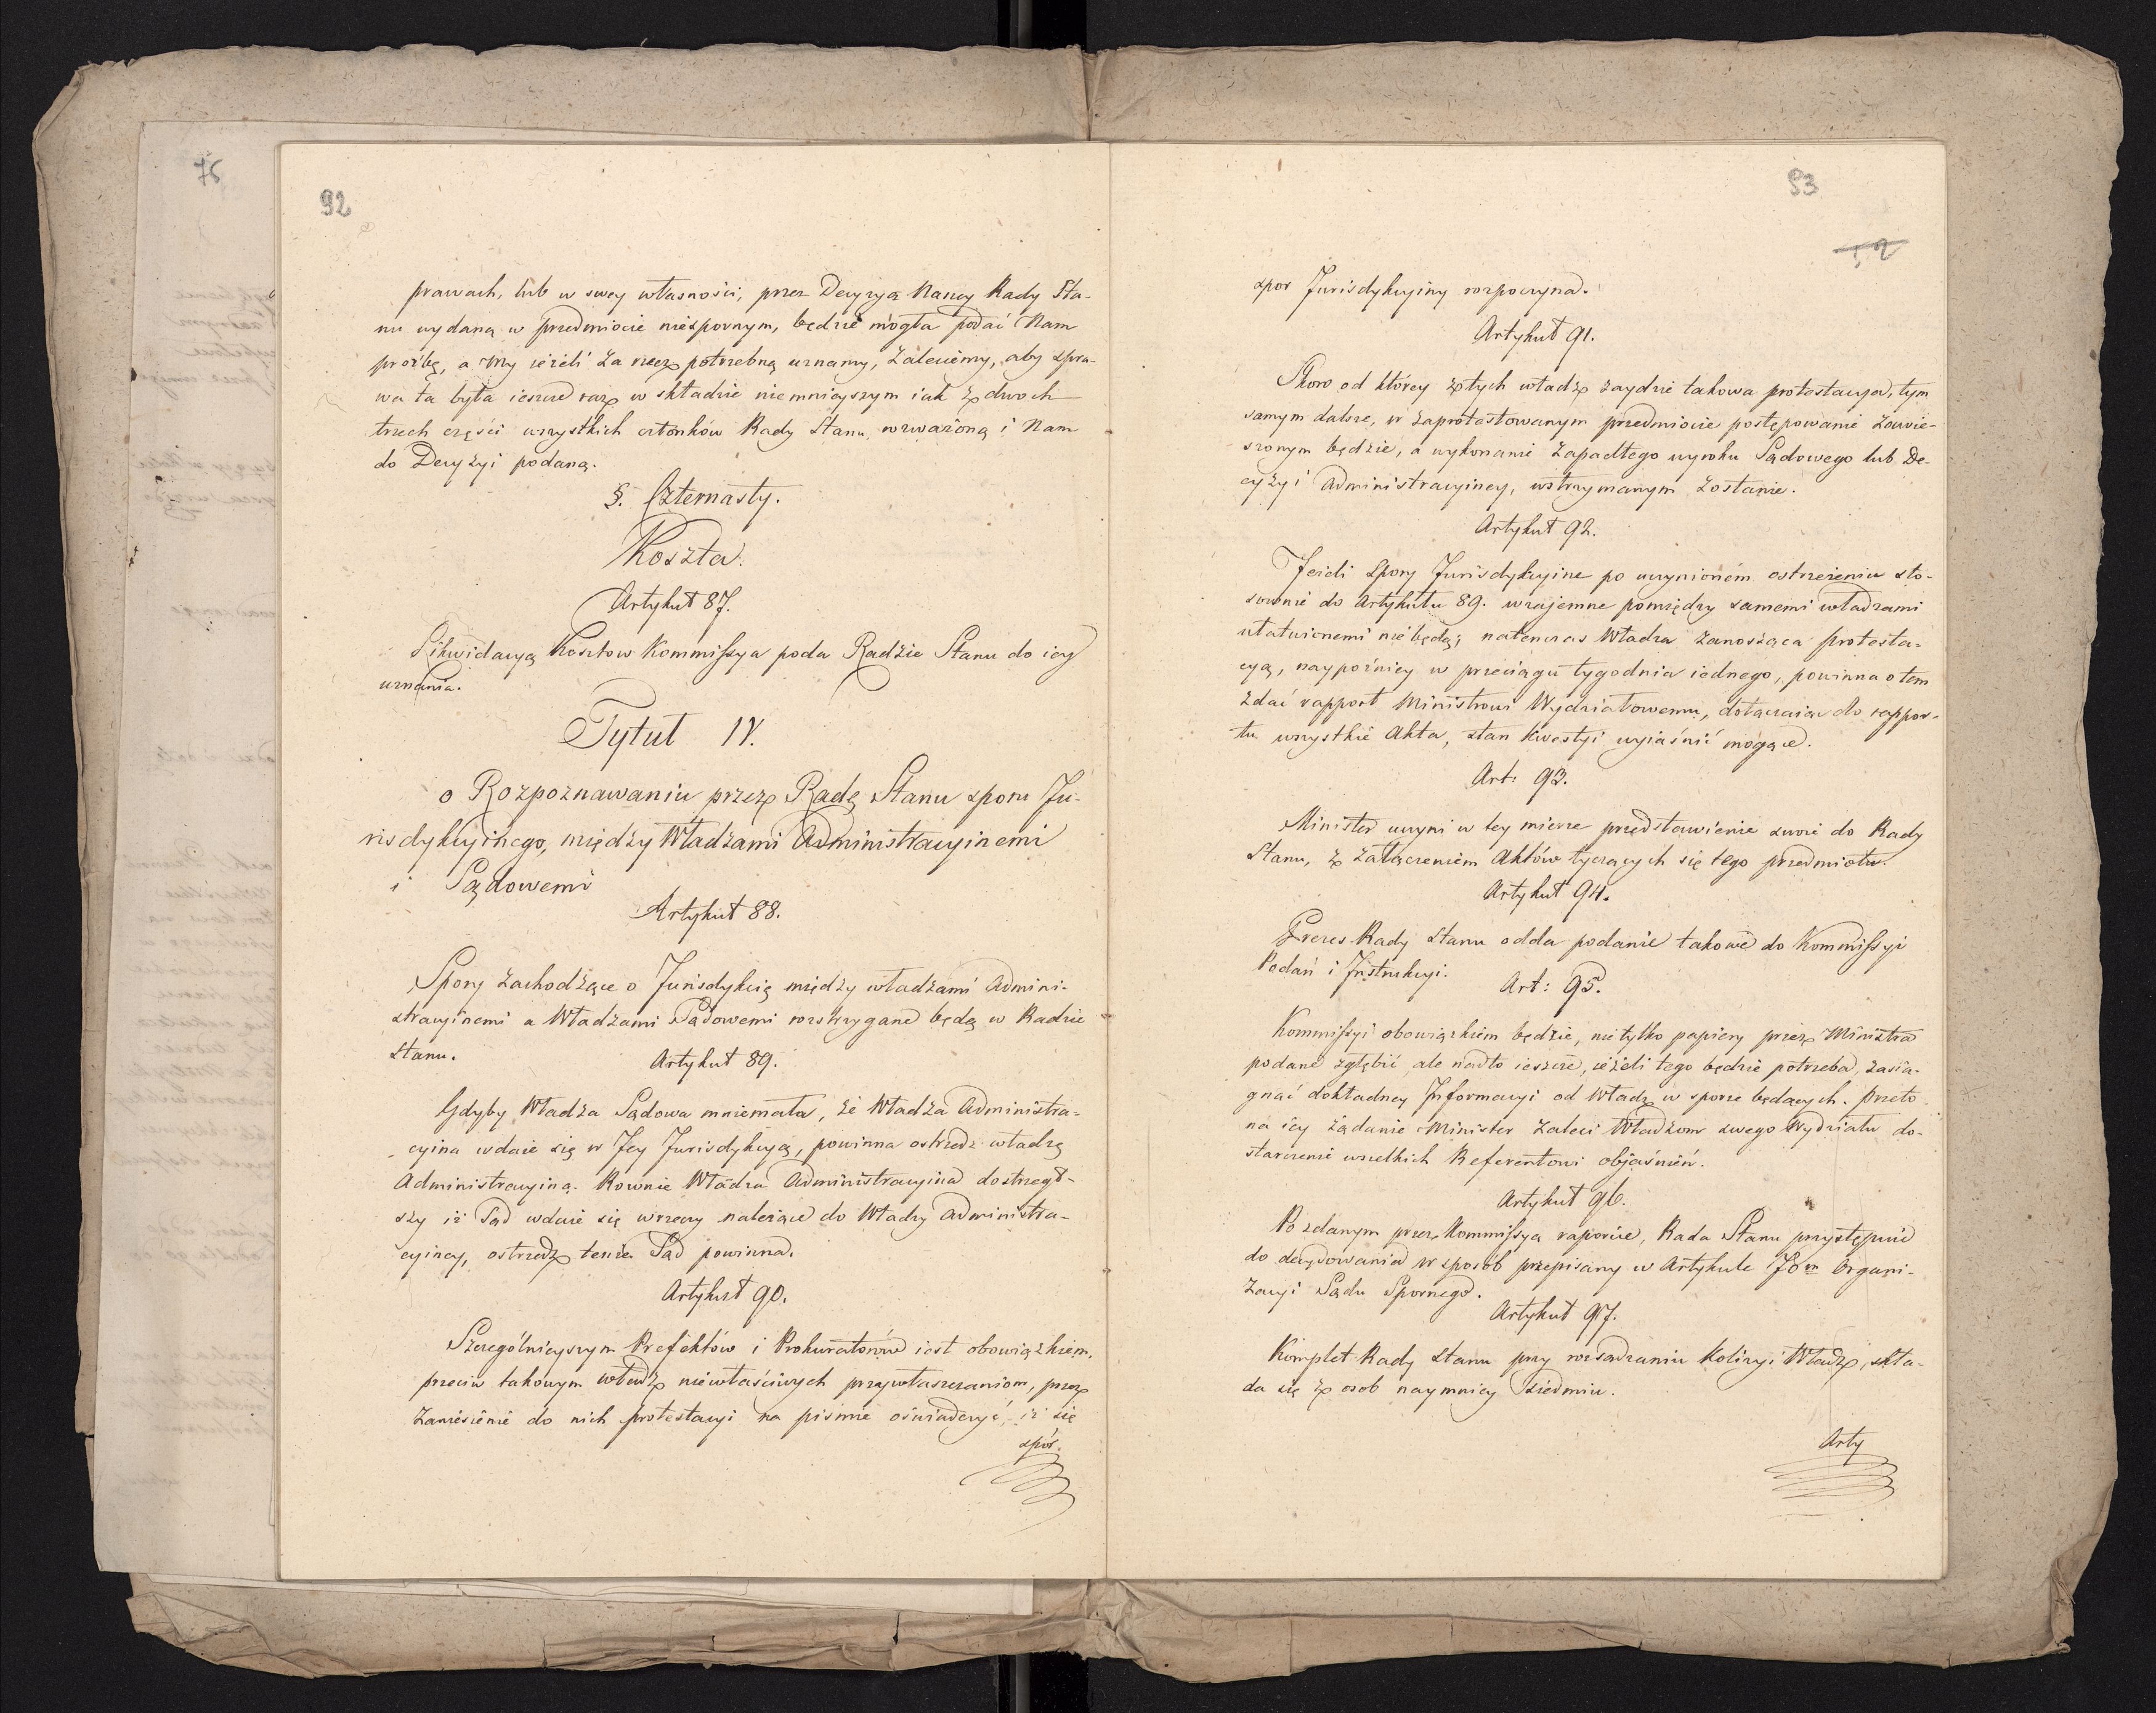 75
92
prawach, lub w swey własności, przez Decyzyą Naszey Rady Sta-
nu wydaną w przedmiocie niespornym, będzie mogła podać Nam
prożbę, a My ieżeli za rzecz potrzebną uznamy, zalecimy, aby spra-
wa ta była ieszcze raz w składzie niemnieyszym iak z dwoch
trzech części wszystkich członków Rady Stanu, rozważoną i Nam
do Decyzyi podaną.
§. Czternasty.
Koszta.
Artykuł 87.
Likwidacyą Kosztow Kommissya poda Radzie Stanu do iey
uznania.
Tytuł IV.
o Rozpoznawaniu przez Radę Stanu sporu Ju-
risdykcyinego, między Władzami Administracyinemi
i Sądowemi
Artykuł 88.
Spory zachodzące o Jurisdykcią między władzami Admini-
stracyinemi a Władzami Sądowemi rozstrzygane będą w Radzie
Stanu.
Artykuł 89.
Gdyby Władza Sądowa mniemała, że Władza Administra-
cyina wdaie się w Jey Jurisdykcyą, powinna ostrzedz władzę
Administracyiną. Rownie Władza Administracyina dostrzegł-
szy iż Sąd wdaie się w rzeczy należące do Władzy Administra-
cyiney, ostrzedz tenże Sąd powinna.
Artykuł 90.
Szczególnieyszym Prefektów i Prokuratorów iest obowiązkiem,
przeciw takowym władz niewłaściwych przywłaszczaniom, przez
zaniesienie do nich protestacyi na piśmie oświadczyć, iż się
spór
93
52
spor Jurisdykcyiny rozpoczyna.
Artykuł 91.
Skoro od którey z tych władz zaydzie takowa protestacya, tym
samym dalsze, w zaprotestowanym przedmiocie postępowanie zawie-
szonym będzie, a wykonanie zapadłego wyroku Sądowego lub De-
cyzyi Administracyiney, wstrzymanym zostanie.
Artykuł 92.
Jeżeli Spory Jurisdykcyine po uczynioném ostrzeżeniu sto-
sownie do Artykułu 89. wzajemne pomiędzy samemi władzami
ułatwionemi nie będą; natenczas Władza zanosząca protesta-
cyą, naypoźniey w przeciągu tygodnia iednego, powinna o tem
zdać rapport Ministrowi Wydziałowemu, dołączaiąc do rappor-
tu wszystkie Akta, stan kwestyi wyiaśnić mogące.
Art: 93.
Minister uczyni w tey mierze przedstawienie swoie do Rady
Stanu, z załączeniem Aktów tyczących się tego przedmiotu.
Artykuł 94.
Prezes Rady Stanu odda podanie takowe do Kommissyi
Podań i Instrukcyi.
Art: 95.
Kommissyi obowiązkiem będzie, nie tylko papiery przez Ministra
podane zgłębić, ale nadto ieszcze, ieżeli tego będzie potrzeba, zasią-
gnąć dokładney Informacyi od Władz w sporze będących. Przeto
na iey żądanie Minister zaleci Władzom swego Wydziału do-
starczenie wszelkich Referentowi objaśnień.
Artykuł 96.
Po zdanym przez Kommissyą raporcie, Rada Stanu przystępuie
do decydowania w sposób przepisany w Artykule 78m Organi-
zacyi Sądu Spornego.
Artykuł 97.
Komplet Rady Stanu przy rozsądzaniu Kolizyi Władz, skła-
da się z osob naymniey siedmiu.
Arty